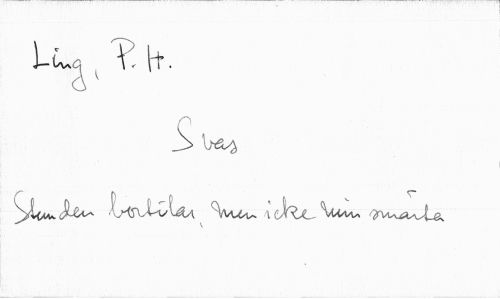 Ling, P. H.
Svas
Stunden bortilar, men icke min smärta